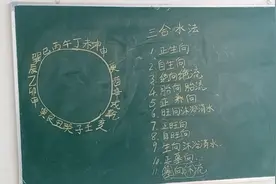 三合水法
1 正生向
2 自生向
3
4
5 正养向
6 旺向沐浴消水
7 正旺向
8 自旺向
9 生向沐浴消水
10 正墓向
11
巽巳丙午丁未坤申
庚酉辛戌乾
辰乙卯甲
艮丑癸子壬亥